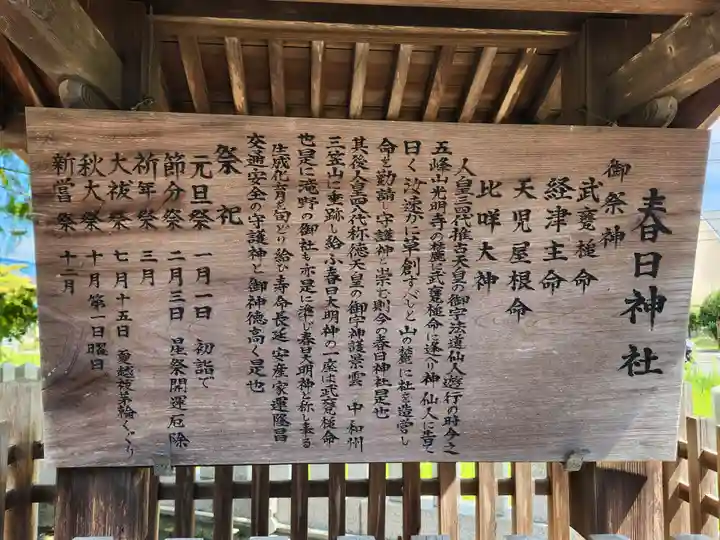 春日神社
御祭神
武甕槌命
経津主命
天児屋根命
比咩大神
人皇三四代推古天皇の御宇法道仙人遊行の時今之
五峰山光明寺の麓に武甕槌命に逢へり神仙人に告て
曰く汝速かに草創すべしと山の麓に社を造営し
命を勧請し守護神に崇む則今の春日神社是也
其後人皇四八代称徳天皇の御宇神護景雲中和州
三笠山に垂跡し給ふ春日大明神の一座は武甕槌命
也是に滝野の御社も亦是に準じ春日大明神と称し奉る
生成化育を司どり給ひ寿命長延安産家運隆昌
交通安全の守護神と御神徳高く是也
祭祀
元旦祭 一月一日 初詣で
節分祭 二月三日 星祭開運厄除
祈年祭 三月
大祓祭 七月十五日 夏越祓茅輪くぐり
秋大祭 十月第一日曜日
新嘗祭 十二月